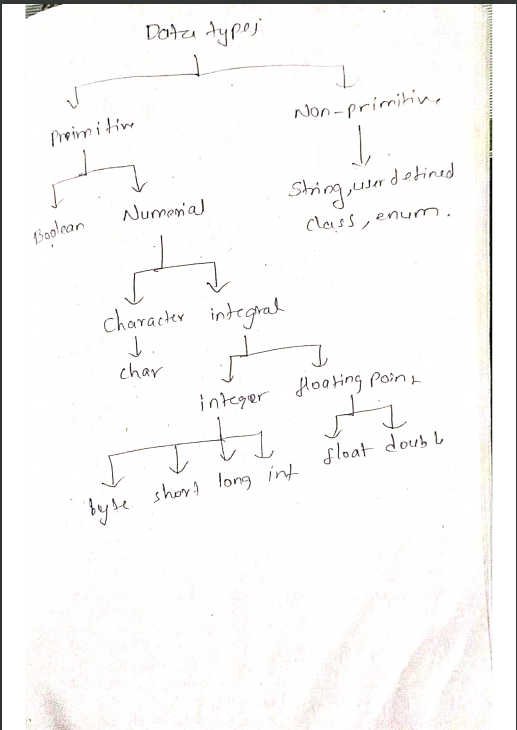 Data types
Primitive
Non-primitive
Boolean
Numerial
String, user defined
class, enum.
Character
integral
char
integer
floating point
float
double
byte
short
long
int